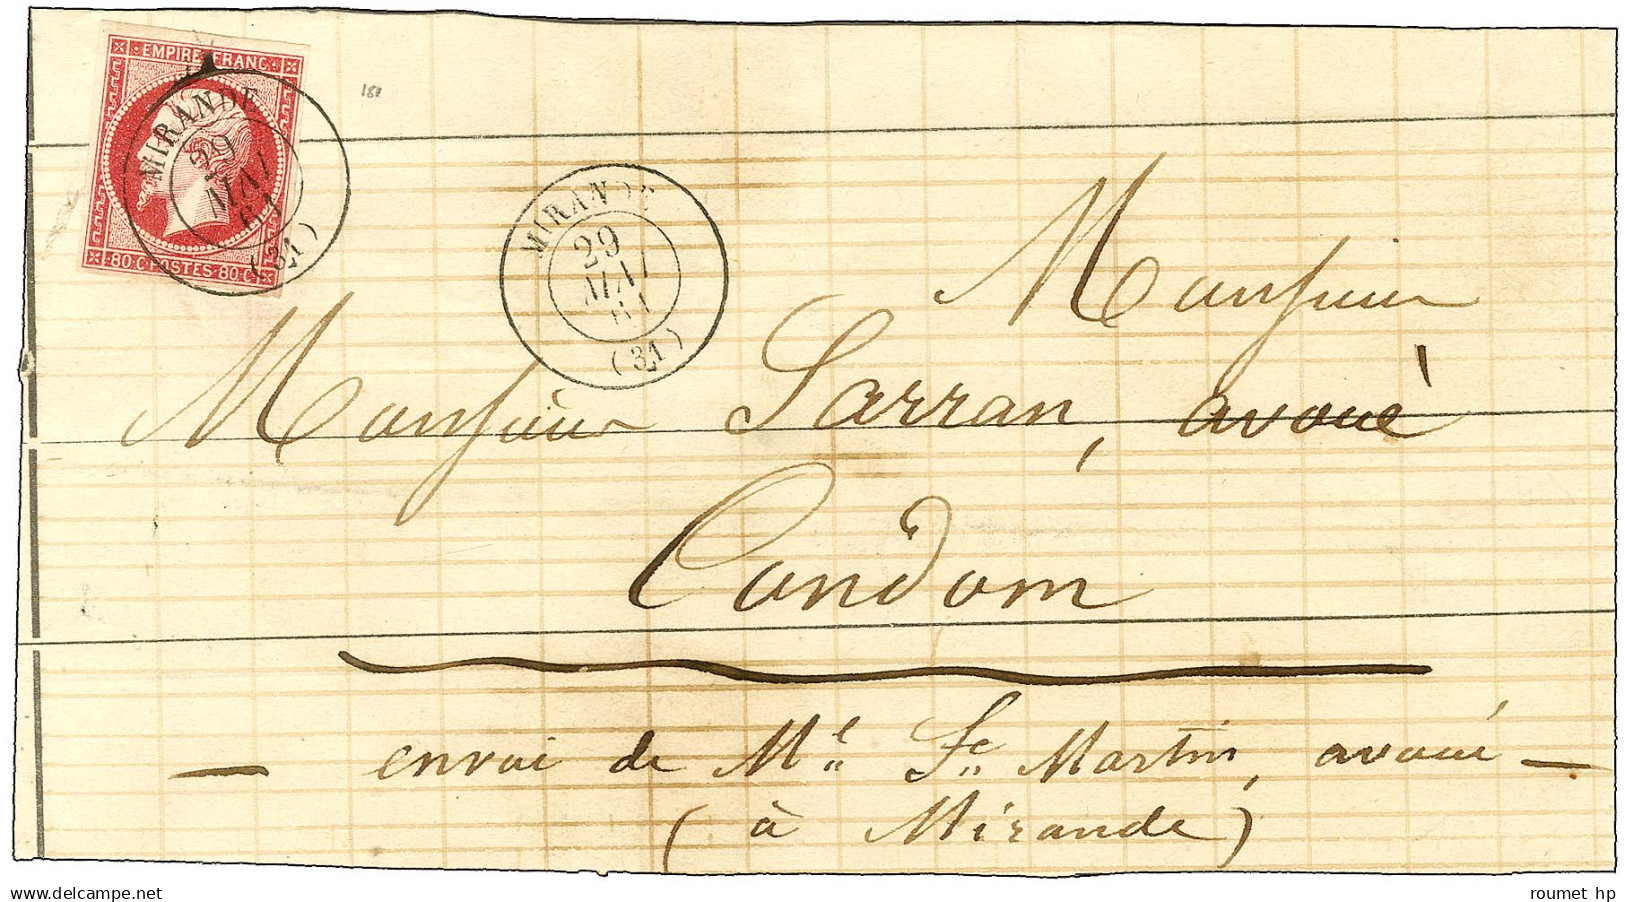 EMPIRE FRANC.
80.C. POSTES 80.C.
MIRANDE
29
MAI
61
(31)
181
MIRANDE
29
MAI
61
(31)
Monsieur
Monsieur Sarran, avoué
Condom
— envoi de Me St Martin, avoué —
(à Mirande)
www.delcampe.net
roumet hp